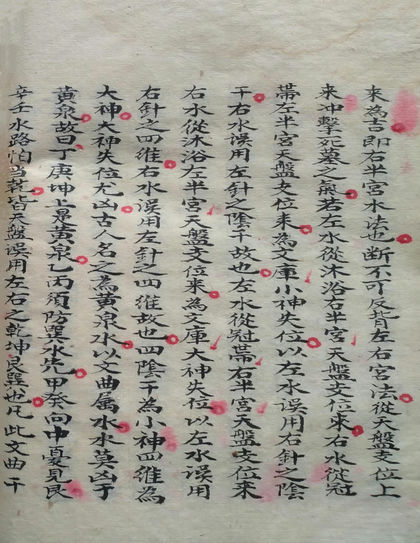 來為吉即右半宮水法也断不可反背左右宮法從天盤支位上
來冲擊死墓之氣若左水從沐浴右半宮天盤支位來右水從冠
帶左半宮天盤支位來為文庫小神失位以左水誤用右針之陰
干右水誤用左針之陰干故也左水從冠帶右半宮天盤支位來
右水從沐浴左半宮天盤支位來為文庫大神失位以左水誤用
右針之四維右水誤用左針之四維故也四陰干為小神四維為
大神大神失位尤凶古人名之為黄泉水以文曲属水水莫凶于
黄泉故曰丁庚坤上是黄泉乙丙須防巽水先甲癸向中憂見艮
辛壬水路怕当乾皆天盤誤用左右之乾坤艮巽也凡此文曲干